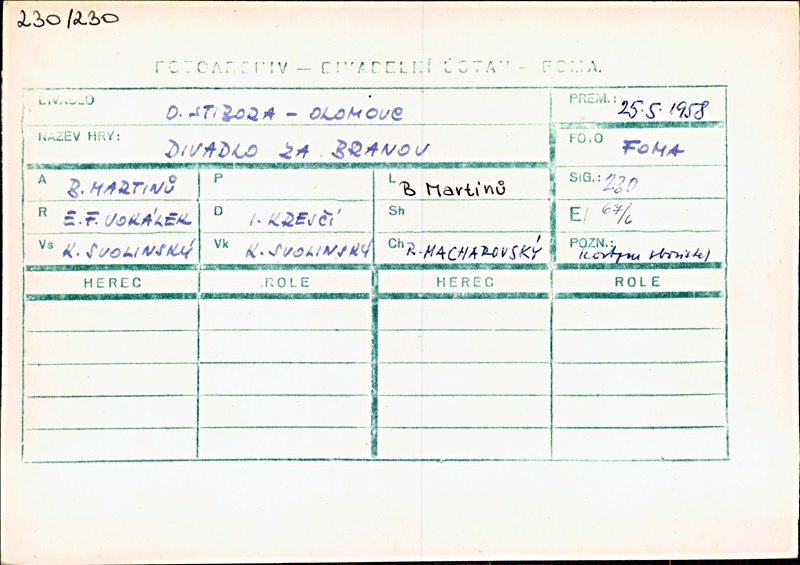 230/230
FOTOARCHIV — DIVADELNÍ ÚSTAV — FOMA.
DIVADLO O. STIBORA – OLOMOUC PREM.: 25.5.1958
NÁZEV HRY: DIVADLO ZA BRANOU FOTO FOMA
A B. MARTINŮ P L B Martinů SIG.: 230
R E.F. VOKÁLEK D I. KREJČÍ Sh E/ 67/6
Vs K. SVOLINSKÝ Vk K. SVOLINSKÝ Ch R. MACHAROVSKÝ POZN.:
HEREC ROLE HEREC ROLE